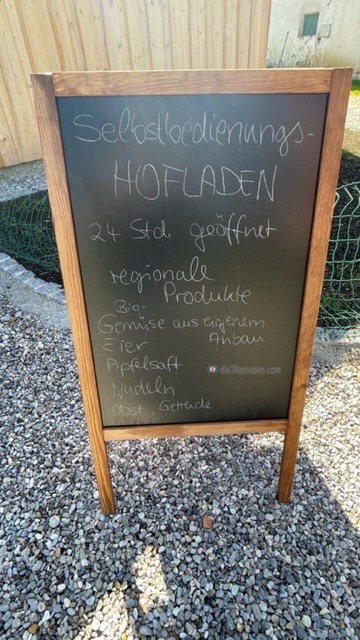 Selbstbedienungs-
HOFLADEN
24 Std. geöffnet
regionale
Produkte
Bio-
Gemüse aus eigenem
Anbau
Eier
Apfelsaft
Nudeln
Obst, Getreide
die2Nomaden.com